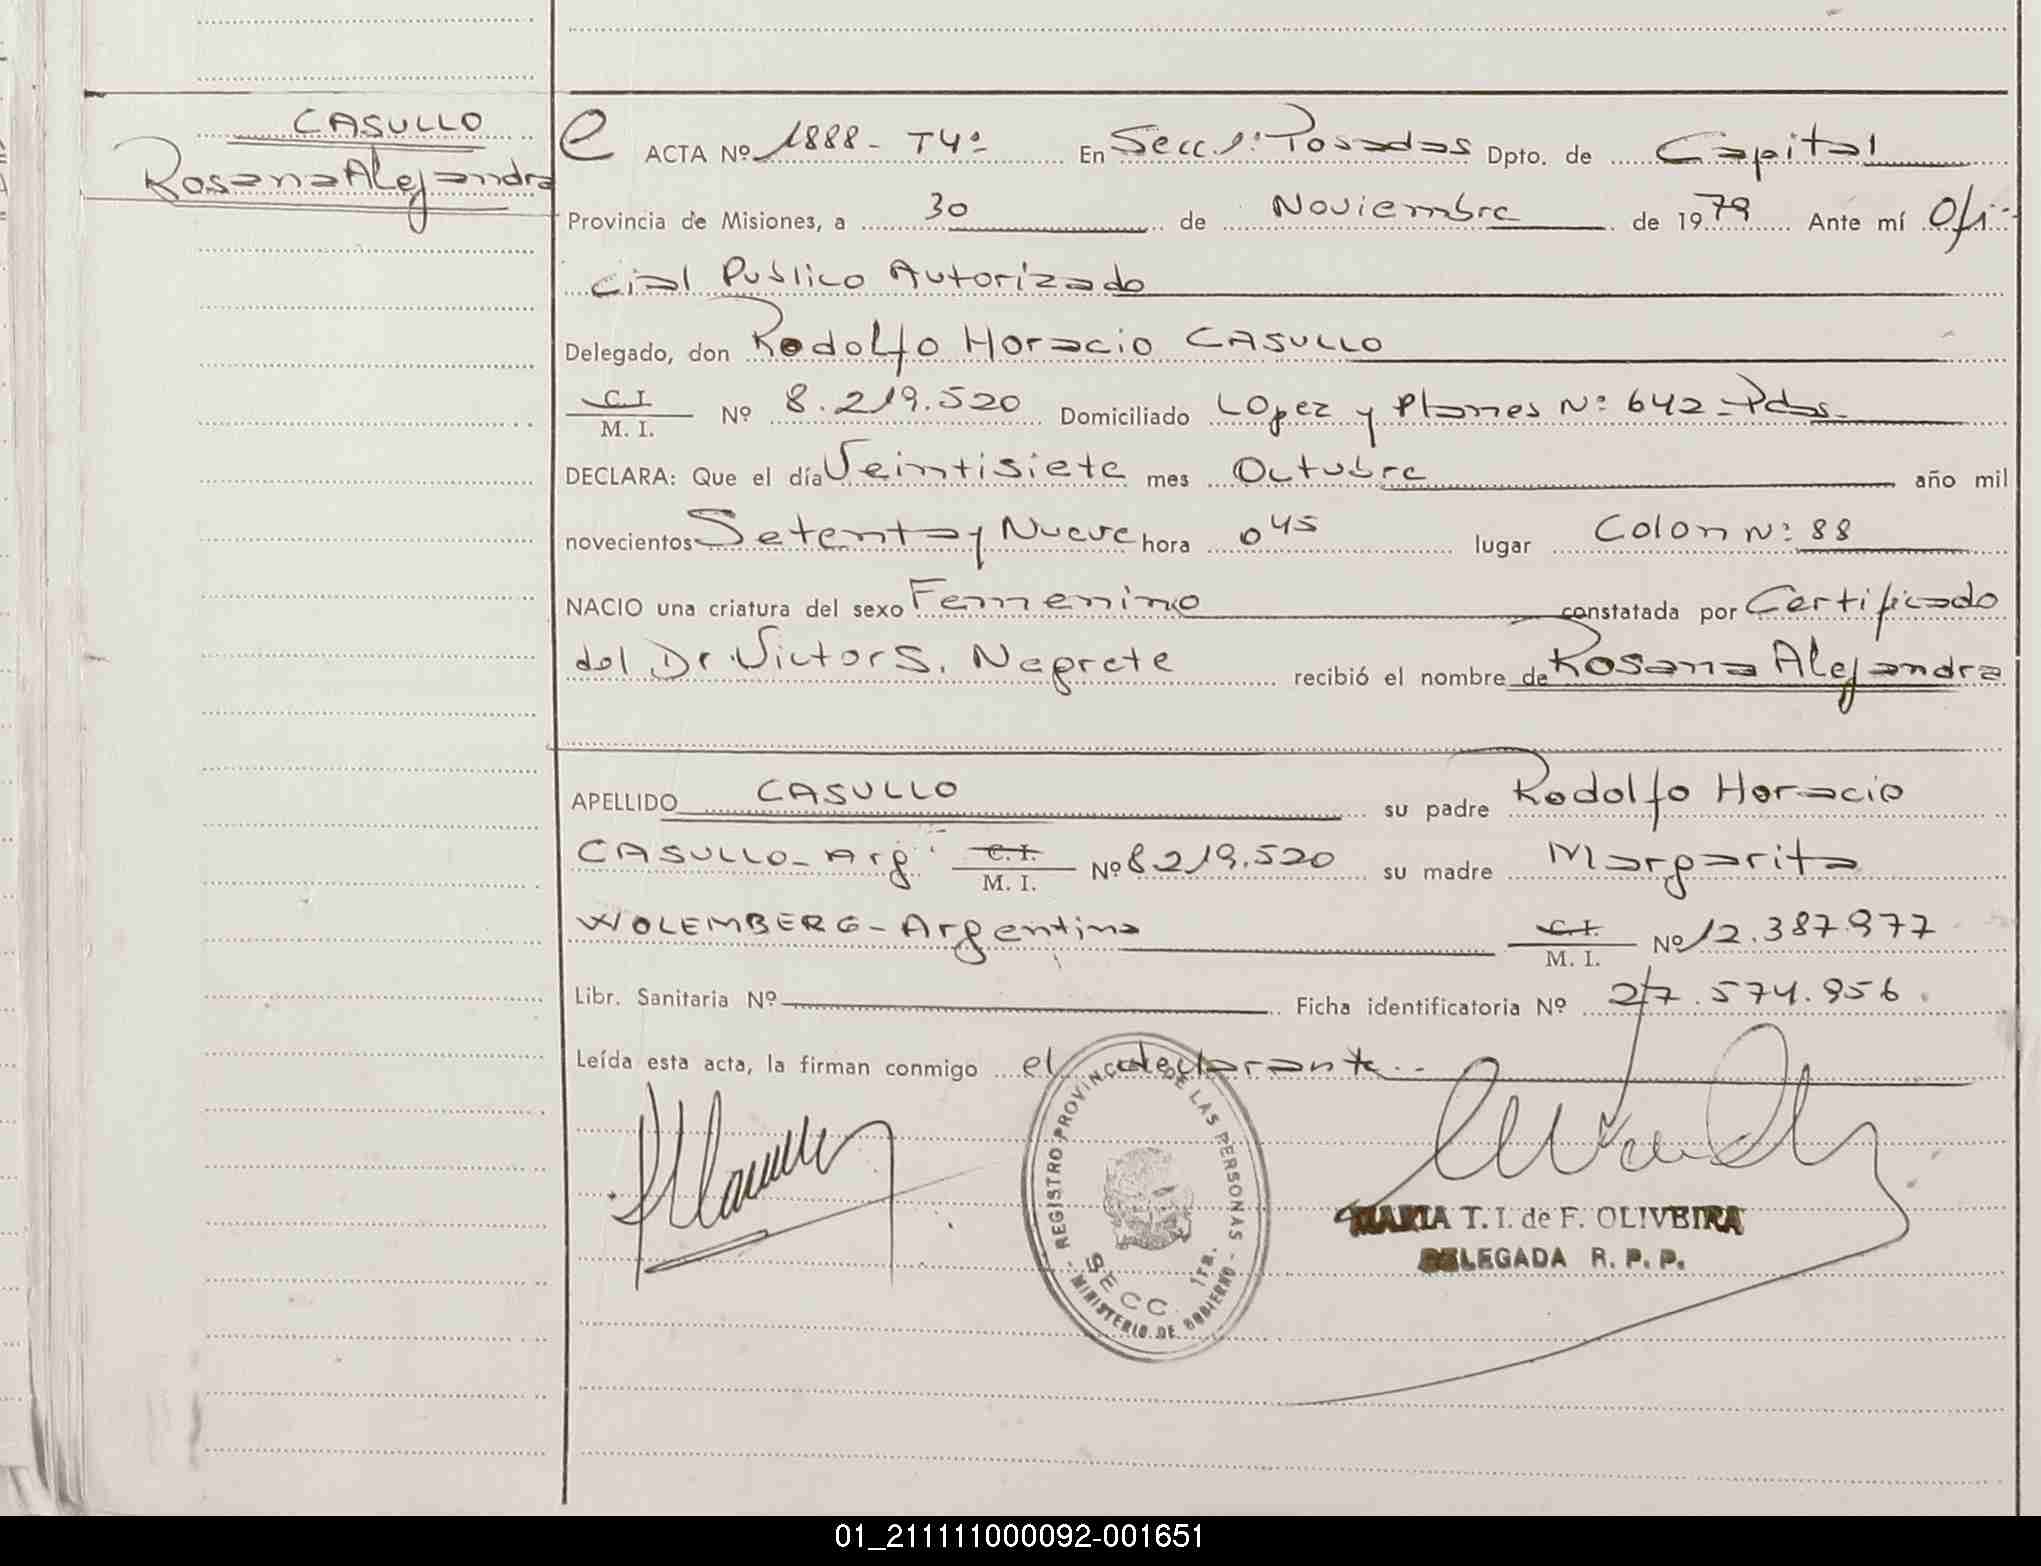 CASULLO
Rosana Alejandra
e ACTA Nº 1888 - T4º En Secc 1ª Posadas Dpto. de Capital
Provincia de Misiones, a 30 de Noviembre de 1979 Ante mí Ofi-
cial Publico Autorizado
Delegado, don Rodolfo Horacio CASULLO
C.I / M. I. Nº 8.219.520 Domiciliado Lopez y Planes Nº 642 - Pdas.
DECLARA: Que el día Veintisiete mes Octubre año mil
novecientos Setenta y Nueve hora 0 45 lugar Colon Nº 88
NACIO una criatura del sexo Femenino constatada por Certificado
del Dr. Victor S. Negrete recibió el nombre de Rosana Alejandra
APELLIDO CASULLO su padre Rodolfo Horacio
CASULLO - Arg. C. I. / M. I. Nº 8.219.520 su madre Margarita
WOLEMBERG - Argentina C.I. / M. I. Nº 12.387.977
Libr. Sanitaria Nº Ficha identificatoria Nº 27.574.956.
Leída esta acta, la firman conmigo el declarante..
REGISTRO PROVINCIAL DE LAS PERSONAS - MINISTERIO DE GOBIERNO -
SECC. 1ra.
MARIA T. I. de F. OLIVEIRA
DELEGADA R. P. P.
01_211111000092-001651